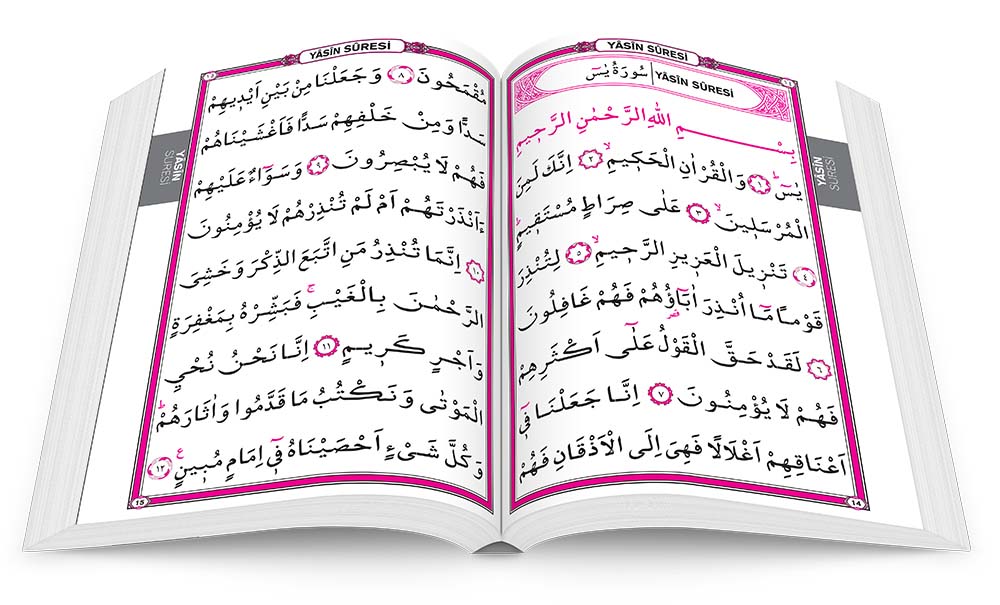 YÂSÎN SÛRESİ
سُورَةُ يٰسٓ
YÂSÎN SÛRESİ
بِسْــــمِ اللّٰهِ الرَّحْمٰنِ الرَّحٖيمِ
يٰسٓۜ ﴿١﴾ وَالْقُرْاٰنِ الْحَكٖيمِۙ ﴿٢﴾ اِنَّكَ لَمِنَ
الْمُرْسَلٖينَۙ ﴿٣﴾ عَلٰى صِرَاطٍ مُسْتَقٖيمٍۜ
﴿٤﴾ تَنْزٖيلَ الْعَزٖيزِ الرَّحٖيمِۙ ﴿٥﴾ لِتُنْذِرَ
قَوْمًا مَٓا اُنْذِرَ اٰبَٓاؤُ۬هُمْ فَهُمْ غَافِلُونَ
﴿٦﴾ لَقَدْ حَقَّ الْقَوْلُ عَلٰٓى اَكْثَرِهِمْ
فَهُمْ لَا يُؤْمِنُونَ ﴿٧﴾ اِنَّا جَعَلْنَا فٖٓى
اَعْنَاقِهِمْ اَغْلَالًا فَهِىَ اِلَى الْاَذْقَانِ فَهُمْ
14
YÂSÎN SÛRESİ
YÂSÎN SÛRESİ
مُقْمَحُونَ ﴿٨﴾ وَجَعَلْنَا مِنْ بَيْنِ اَيْدٖيهِمْ
سَدًّا وَمِنْ خَلْفِهِمْ سَدًّا فَاَغْشَيْنَاهُمْ
فَهُمْ لَا يُبْصِرُونَ ﴿٩﴾ وَسَوَٓاءٌ عَلَيْهِمْ
ءَاَنْذَرْتَهُمْ اَمْ لَمْ تُنْذِرْهُمْ لَا يُؤْمِنُونَ
﴿١٠﴾ اِنَّمَا تُنْذِرُ مَنِ اتَّبَعَ الذِّكْرَ وَخَشِىَ
الرَّحْمٰنَ بِالْغَيْبِۚ فَبَشِّرْهُ بِمَغْفِرَةٍ
وَاَجْرٍ كَرٖيمٍ ﴿١١﴾ اِنَّا نَحْنُ نُحْيِ
الْمَوْتٰى وَنَكْتُبُ مَا قَدَّمُوا وَاٰثَارَهُمْۜ
وَكُلَّ شَىْءٍ اَحْصَيْنَاهُ فٖٓى اِمَامٍ مُبٖينٍ ﴿١٣﴾
15
YÂSÎN
SÛRESİ